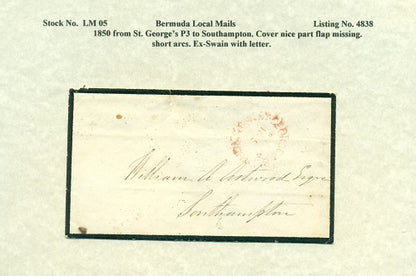 Stock No. LM 05 Bermuda Local Mails Listing No. 4838
1850 from St. George's P3 to Southampton. Cover nice part flap missing.
short arcs. Ex-Swain with letter.
William A Astwood Esqre
Southampton